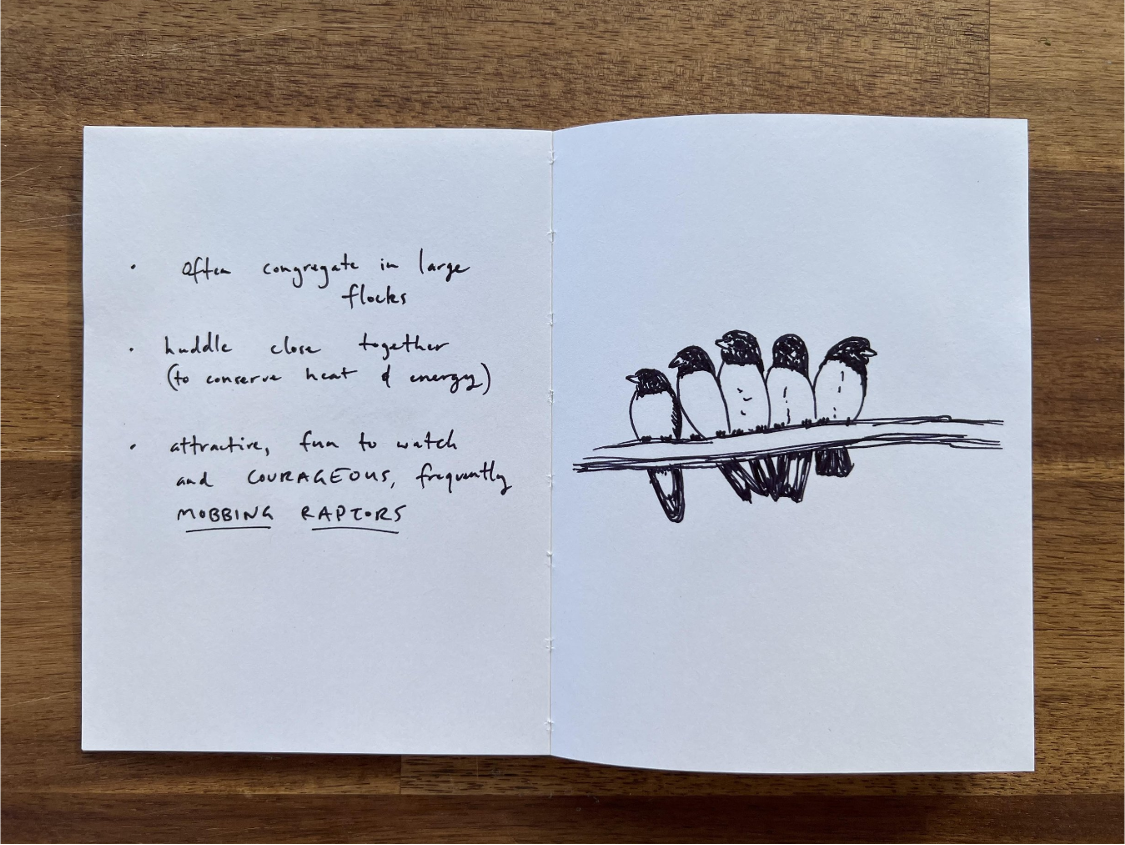 · Often congregate in large
flocks
· huddle close together
(to conserve heat & energy)
· attractive, fun to watch
and COURAGEOUS, frequently
MOBBING RAPTORS